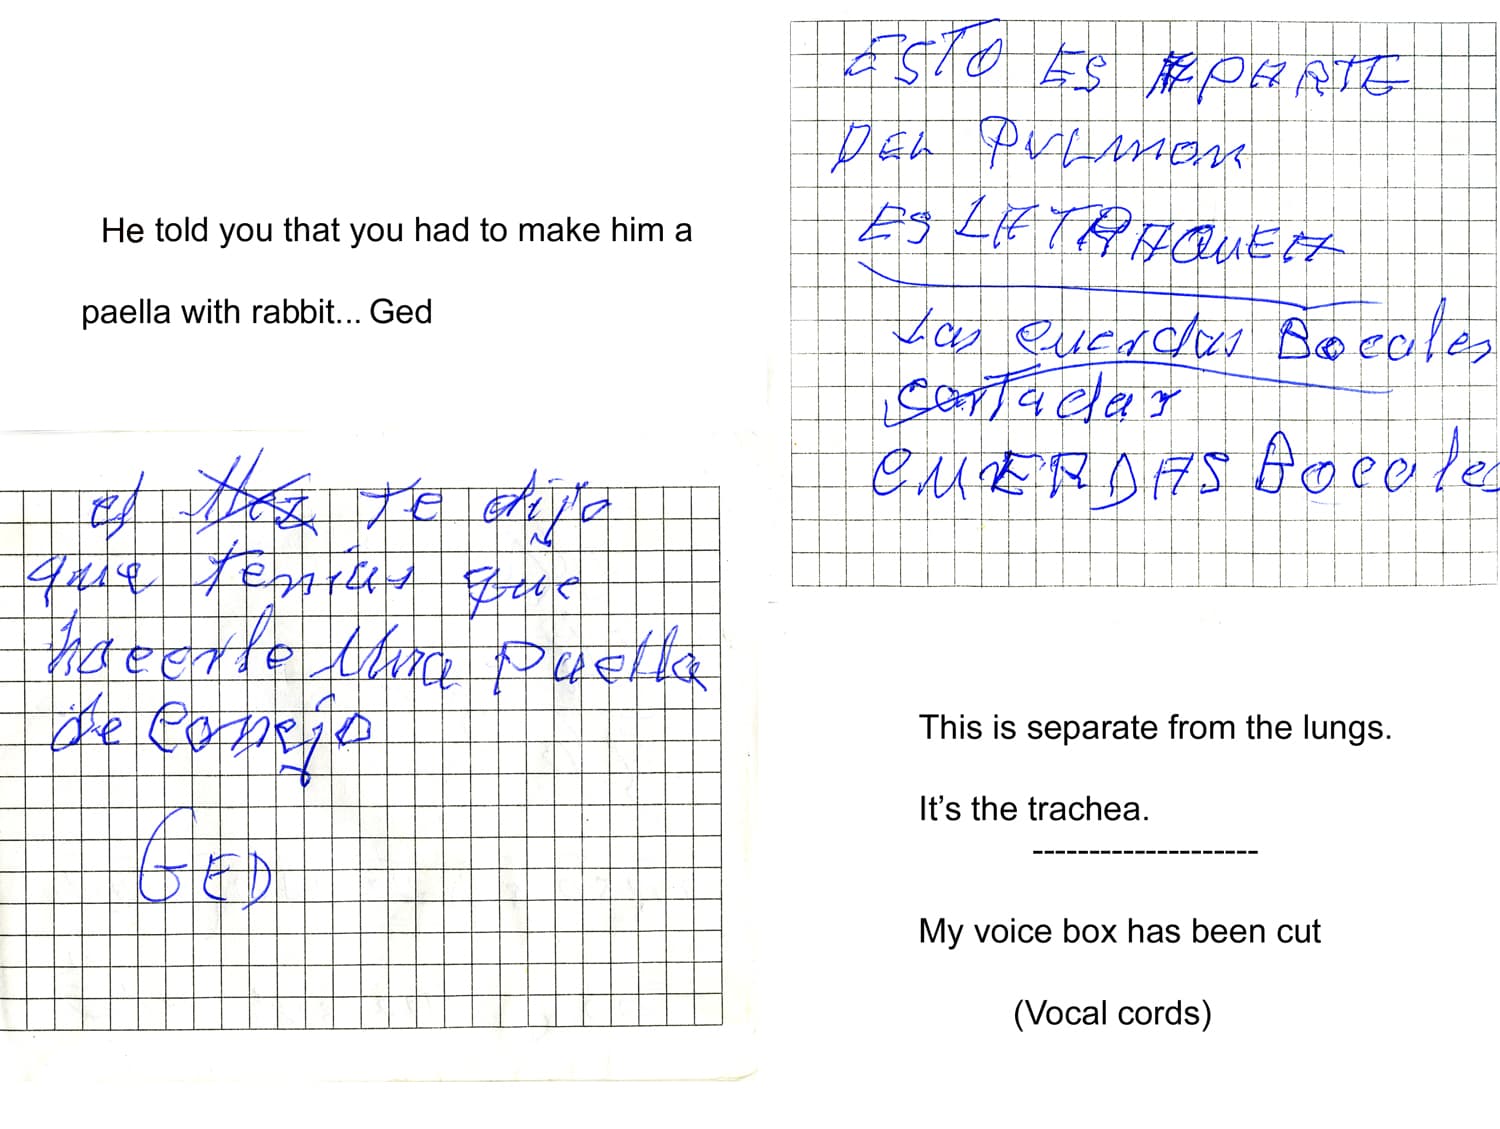 He told you that you had to make him a
paella with rabbit... Ged
el te dijo
que tenias que
hacerle una paella
de conejo
GED
ESTO ES APARTE
DEL PULMON
ES LA TRAQUEA
las cuerdas Bocales
cortadas
CUERDAS Bocales
This is separate from the lungs.
It’s the trachea.
--------------------
My voice box has been cut
(Vocal cords)